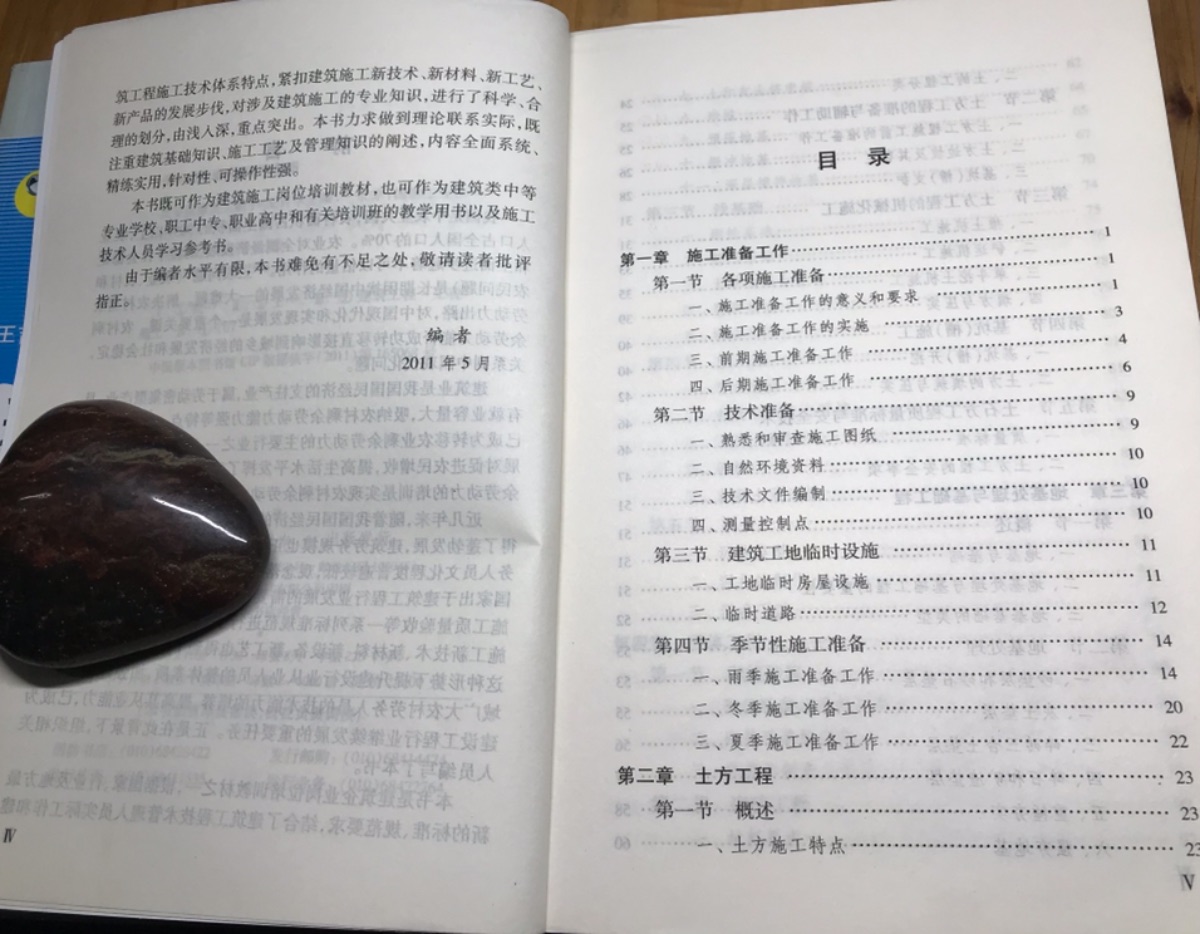 筑工程施工技术体系特点,紧扣建筑施工新技术、新材料、新工艺、
新产品的发展步伐,对涉及建筑施工的专业知识,进行了科学、合
理的划分,由浅入深,重点突出。本书力求做到理论联系实际,既
注重建筑基础知识、施工工艺及管理知识的阐述,内容全面系统、
精练实用,针对性、可操作性强。
本书既可作为建筑施工岗位培训教材,也可作为建筑类中等
专业学校、职工中专、职业高中和有关培训班的教学用书以及施工
技术人员学习参考书。
由于编者水平有限,本书难免有不足之处,敬请读者批评
指正。
编 者
2011 年 5 月
Ⅳ
目 录
第一章 施工准备工作 ⋯⋯ 1
第一节 各项施工准备 ⋯⋯ 1
一、施工准备工作的意义和要求 ⋯⋯ 1
二、施工准备工作的实施 ⋯⋯ 3
三、前期施工准备工作 ⋯⋯ 4
四、后期施工准备工作 ⋯⋯ 6
第二节 技术准备 ⋯⋯ 9
一、熟悉和审查施工图纸 ⋯⋯ 9
二、自然环境资料 ⋯⋯ 10
三、技术文件编制 ⋯⋯ 10
四、测量控制点 ⋯⋯ 10
第三节 建筑工地临时设施 ⋯⋯ 11
一、工地临时房屋设施 ⋯⋯ 11
二、临时道路 ⋯⋯ 12
第四节 季节性施工准备 ⋯⋯ 14
一、雨季施工准备工作 ⋯⋯ 14
二、冬季施工准备工作 ⋯⋯ 20
三、夏季施工准备工作 ⋯⋯ 22
第二章 土方工程 ⋯⋯ 23
第一节 概述 ⋯⋯ 23
一、土方施工特点 ⋯⋯ 23
Ⅴ